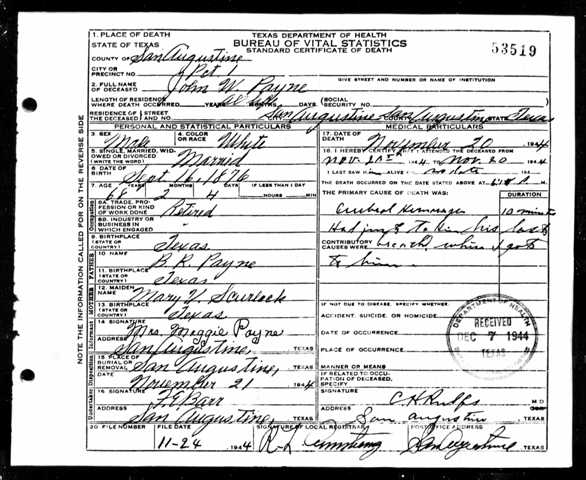 1. PLACE OF DEATH
STATE OF TEXAS
TEXAS DEPARTMENT OF HEALTH
BUREAU OF VITAL STATISTICS
STANDARD CERTIFICATE OF DEATH
53519
COUNTY OF San Augustine
CITY OR PRECINCT NO. Pct 1
GIVE STREET AND NUMBER OR NAME OF INSTITUTION
2. FULL NAME OF DECEASED John W. Payne
LENGTH OF RESIDENCE WHERE DEATH OCCURRED YEARS MONTHS DAYS
SOCIAL SECURITY NO.
RESIDENCE OF THE DECEASED STREET AND NO. San Augustine San Augustine COUNTY STATE Texas
PERSONAL AND STATISTICAL PARTICULARS
MEDICAL PARTICULARS
3. SEX Male
4. COLOR OR RACE White
17. DATE OF DEATH November 20 1944
5. SINGLE, MARRIED, WIDOWED OR DIVORCED (WRITE THE WORD) Married
18. I HEREBY CERTIFY THAT I ATTENDED THE DECEASED FROM
Nov. 20 1944 Nov. 20 1944
6. DATE OF BIRTH Sept 16, 1876
I LAST SAW
7. AGE YEARS MONTHS DAYS IF LESS THAN 1 DAY
68 2 4 HOURS MIN
THE DEATH OCCURRED ON THE DATE STATED ABOVE AT M.
THE PRIMARY CAUSE OF DEATH WAS:
DURATION
8A. TRADE, PROFESSION OR KIND OF WORK DONE Retired
Cerebral Hemorrage 10 minutes
8B. INDUSTRY OR BUSINESS IN WHICH ENGAGED
Had his last
CONTRIBUTORY CAUSES WERE: when I got
to him.
9. BIRTHPLACE (STATE OR COUNTRY) Texas
10. NAME B. R. Payne
11. BIRTHPLACE (STATE OR COUNTRY) Texas
12. MAIDEN NAME Mary V. Scurlock
13. BIRTHPLACE (STATE OR COUNTRY) Texas
IF NOT DUE TO DISEASE, SPECIFY WHETHER:
ACCIDENT, SUICIDE, OR HOMICIDE
14. SIGNATURE Mrs. Maggie Payne
DATE OF OCCURRENCE
ADDRESS San Augustine, TEXAS
PLACE OF OCCURRENCE
15. PLACE OF BURIAL OR REMOVAL San Augustine, TEXAS
MANNER OR MEANS
DATE November 21 1944
IF RELATED TO OCCUPATION OF DECEASED, SPECIFY
16. SIGNATURE Barr
SIGNATURE M D
ADDRESS San Augustine, TEXAS
San Augustine TEXAS
20. FILE NUMBER
FILE DATE 11-24 1944
SIGNATURE OF LOCAL REGISTRAR
POSTOFFICE ADDRESS San Augustine TEXAS
DEPARTMENT OF HEALTH
RECEIVED
DEC 7 1944
TEXAS
NOTE THE INFORMATION CALLED FOR ON THE REVERSE SIDE
Occupation
FATHER
MOTHER
Informant
Undertaker
Disposition